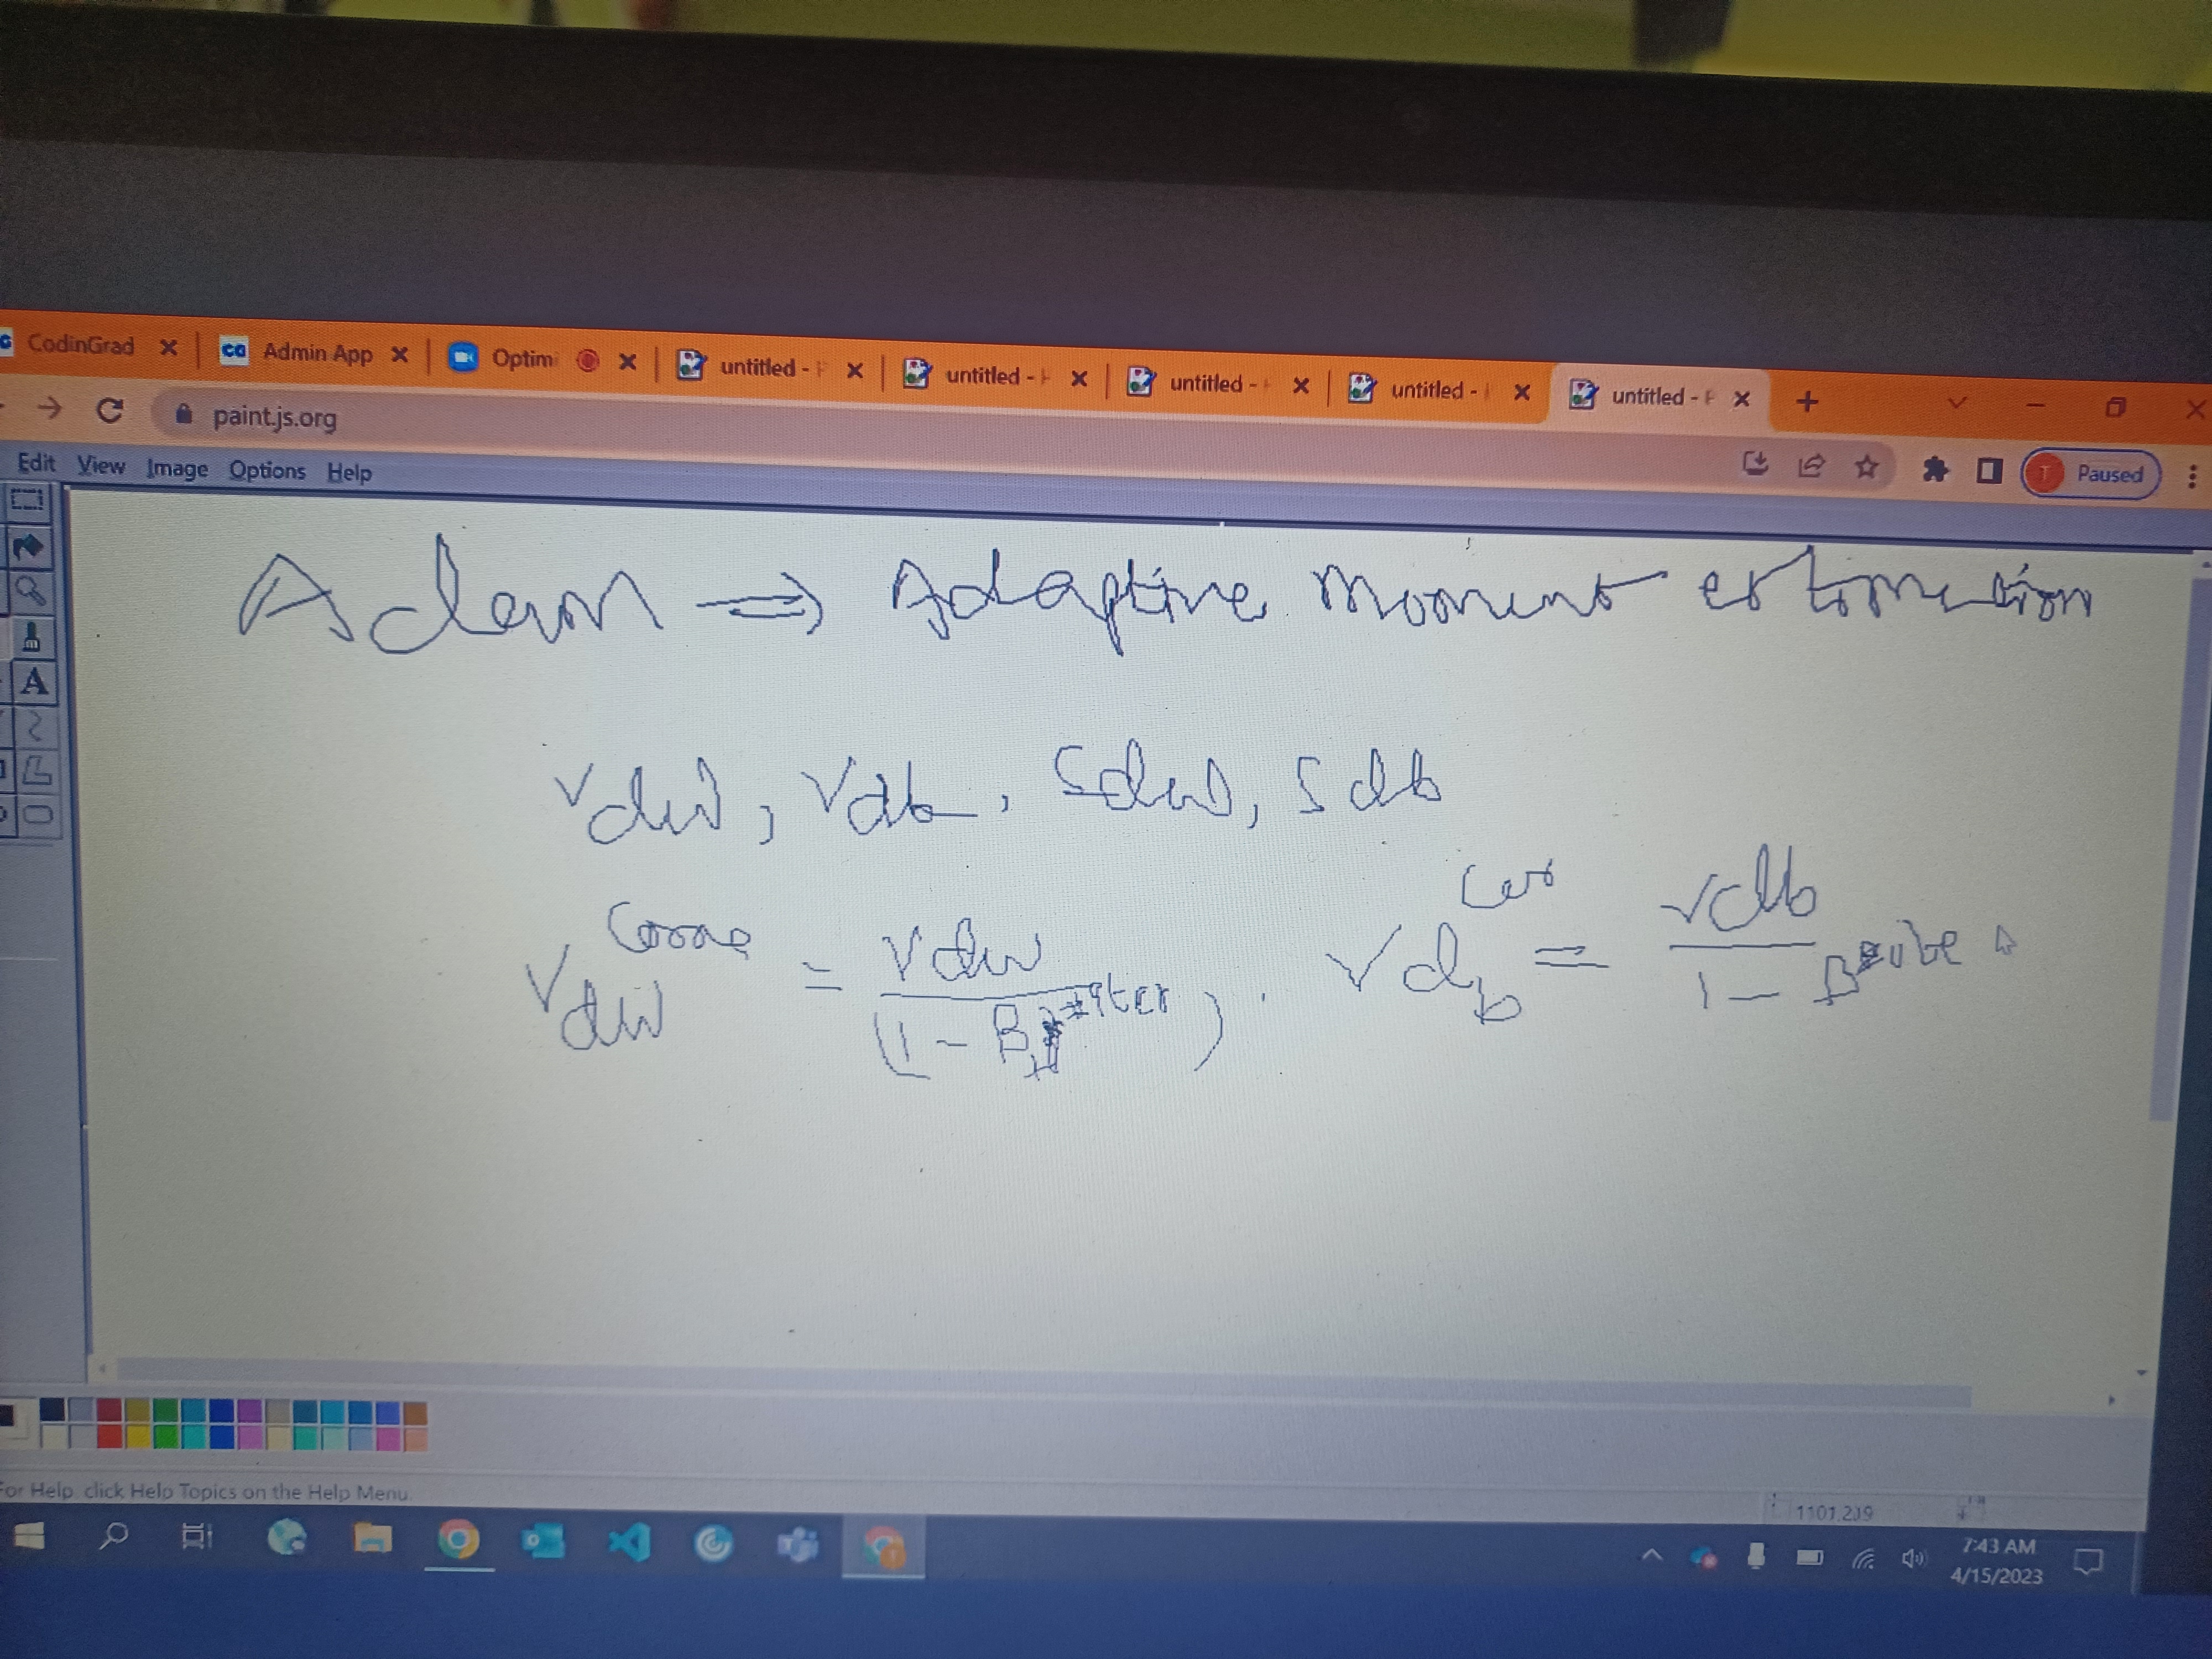 CodinGrad Admin App Optim untitled - untitled - untitled - untitled - untitled - P
paint.js.org Paused
Edit View Image Options Help
A
Adam ⇒ Adaptive Moment estimation
Vdw, Vdb, Sdw, Sdb
V dw = Vdw / (1 - B iter) . Vdb = Vdb / 1 - B
For Help, click Help Topics on the Help Menu.
1101,219
7:43 AM
4/15/2023